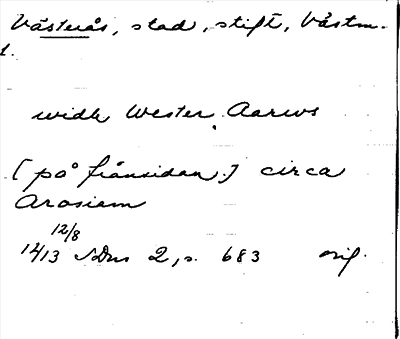 Västerås, stad, stift, Västm.
l.
widh Wester Aarws
[på frånsidan:] circa
Arosiam
12/8
1413 SDns 2, s. 683 orig.